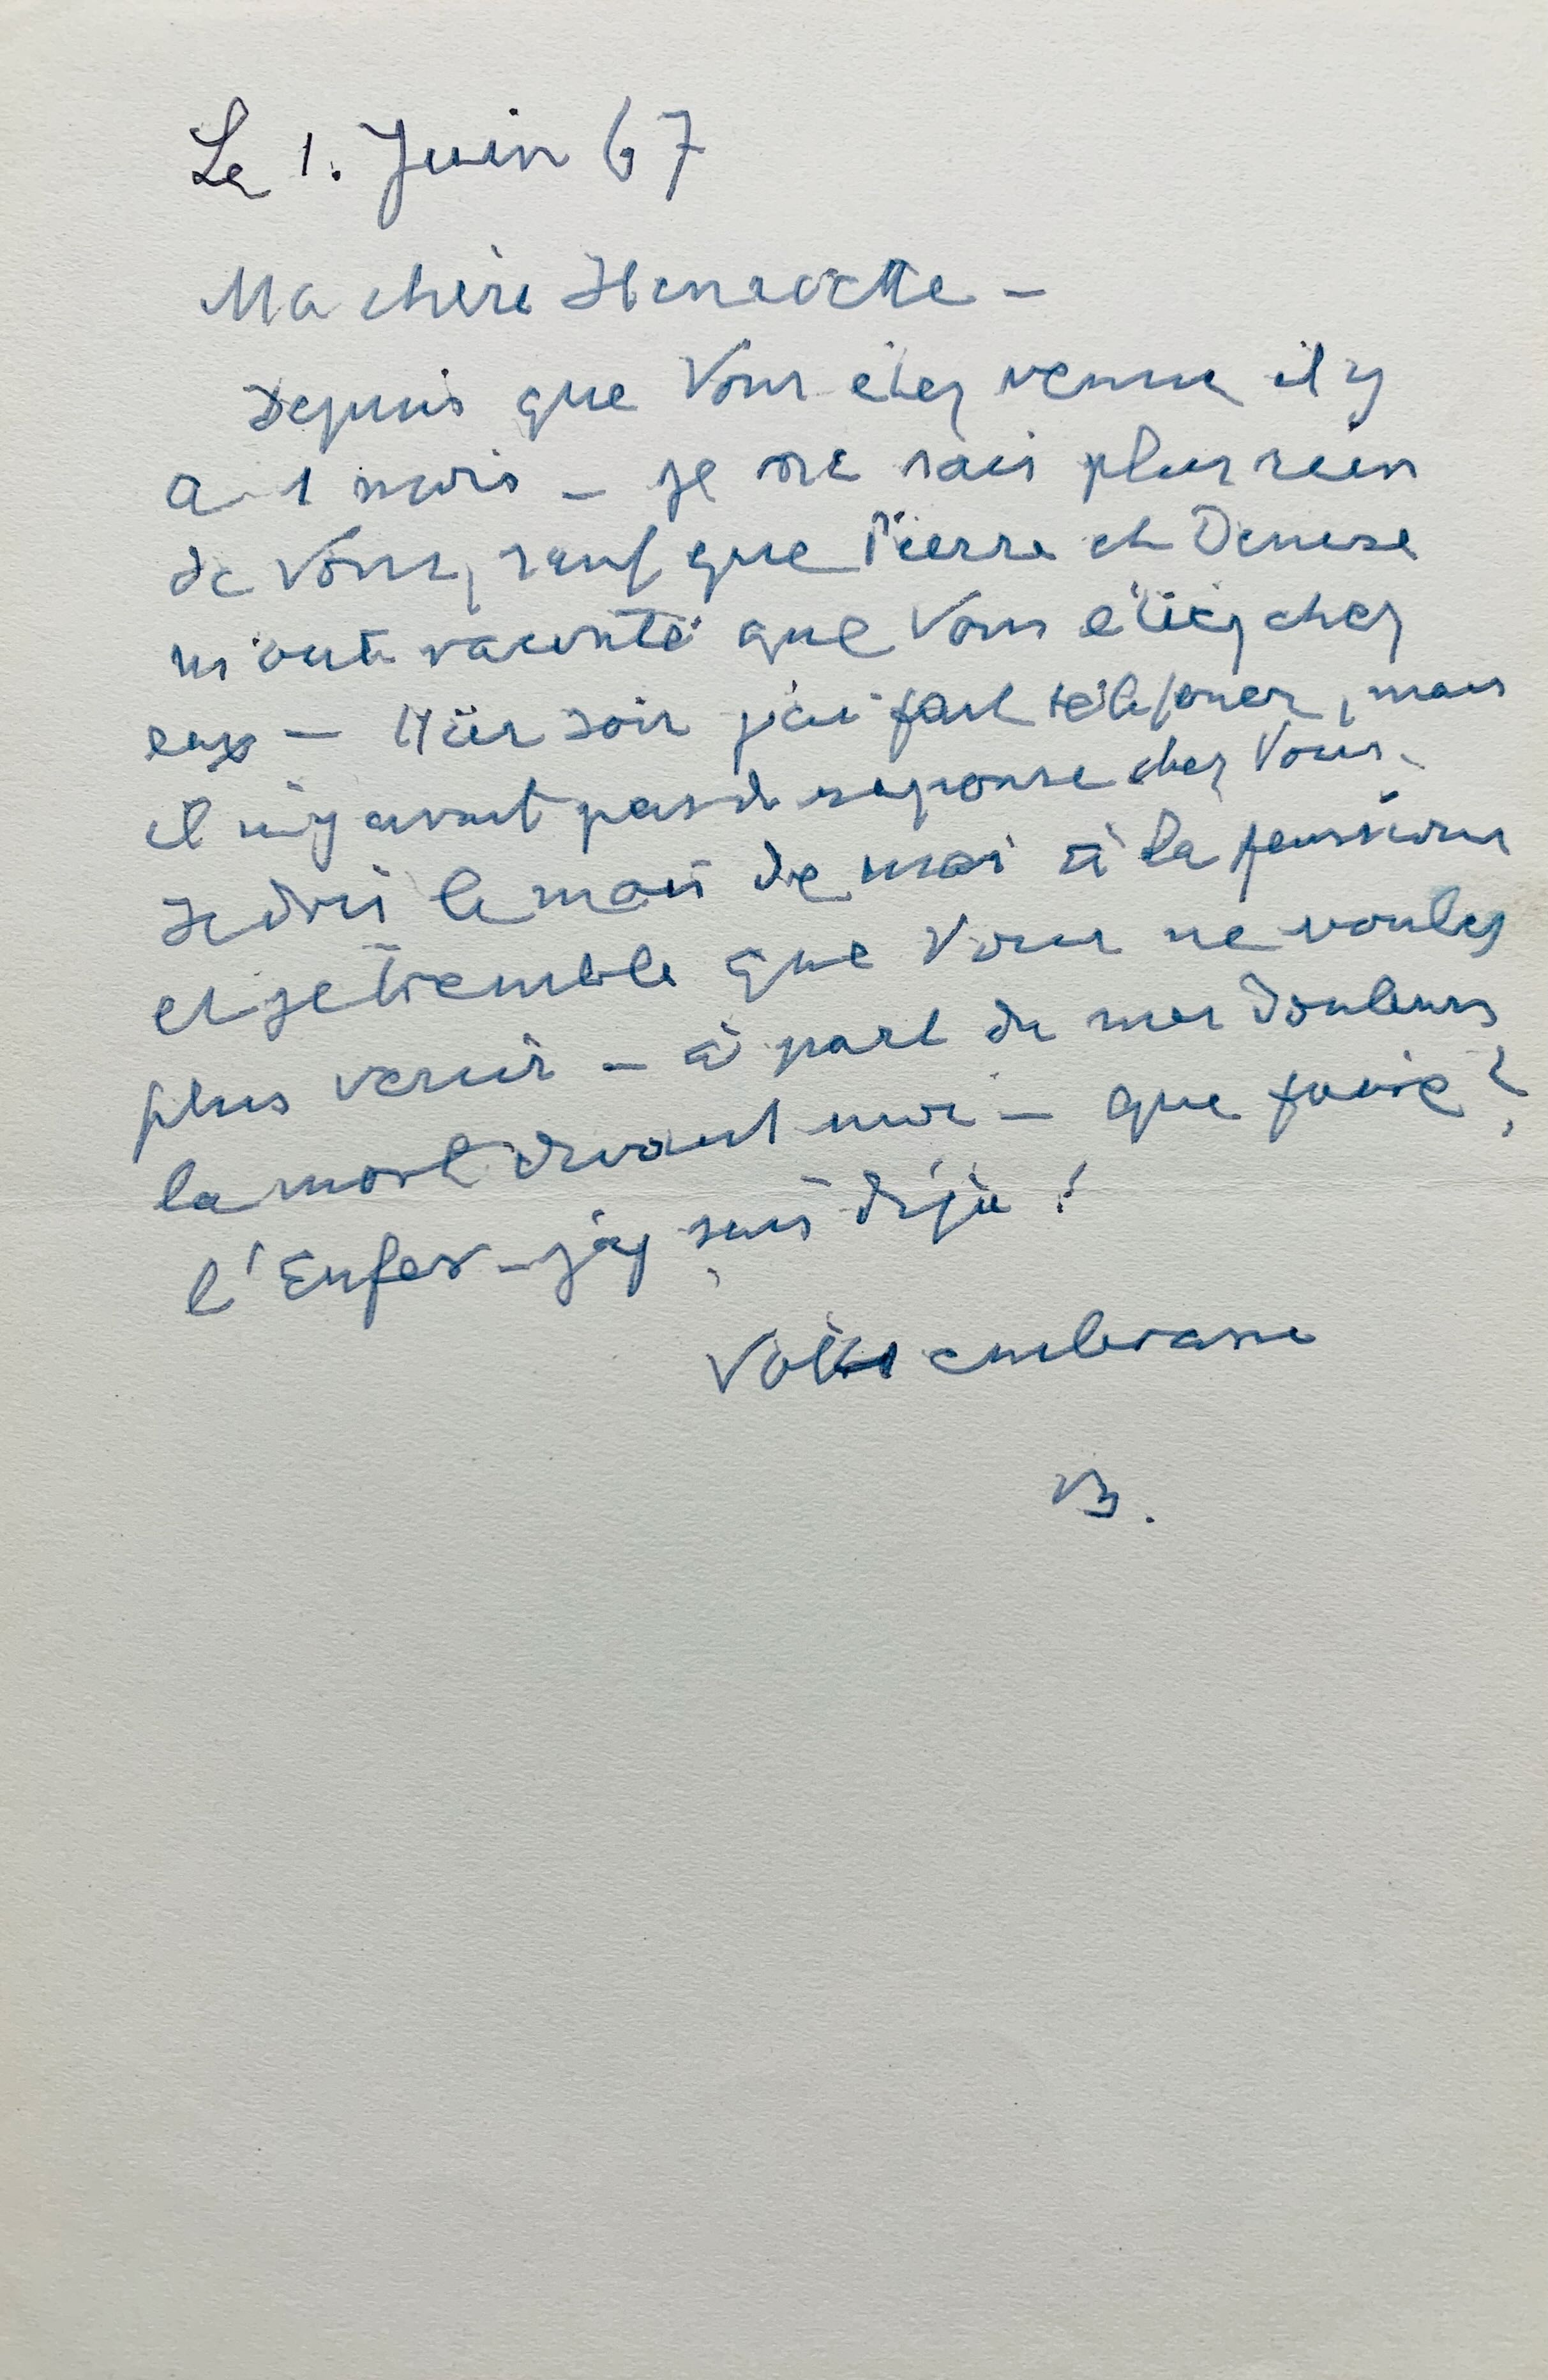 Le 1. Juin 67
Ma chère Henriette –
Depuis que Vous êtes venue il y
a 1 mois – je ne sais plus rien
de Vous, sauf que Pierre et Denise
m'ont raconté que Vous étiez chez
eux – Hier soir j'ai fait téléfoner, mais
il n'y avait pas de reponse chez Vous.
Je dois le mois de mai à la pension
et je tremble que Vous ne voulez
plus venir – à part de mes douleurs
la mort devant moi – que faire?
l'Enfer – j'y suis déjà!
Vous embrasse
B.